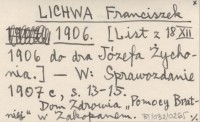 LICHWA Franciszek
1906. [List z 18 XII
1906 do dra Józefa Życho-
nia.] — W: Sprawozdanie
1907 r., s. 13-15.
Dom Zdrowia "Pomocy Brat-
niej" w Zakopanem.